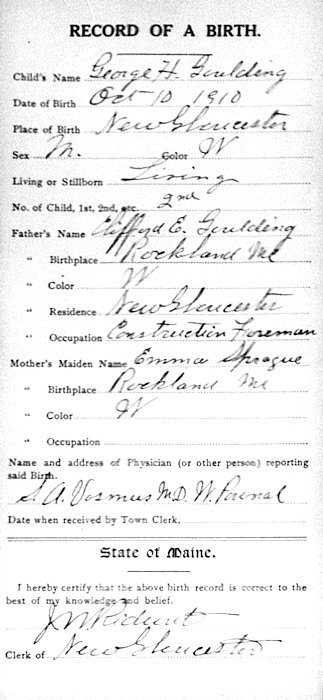 RECORD OF A BIRTH.
Child's Name George H. Goulding
Date of Birth Oct 10 1910
Place of Birth New Gloucester
Sex M. Color W
Living or Stillborn Living
No. of Child, 1st, 2nd, etc. 2nd
Father's Name Clifford E. Goulding
" Birthplace Rockland Me
" Color W
" Residence New Gloucester
" Occupation Construction Foreman
Mother's Maiden Name Emma Sprague
" Birthplace Rockland Me
" Color W
" Occupation
Name and address of Physician (or other person) reporting
said Birth.
S. A. Vosmus M.D. W. Pownal
Date when received by Town Clerk,
State of Maine.
I hereby certify that the above birth record is correct to the
best of my knowledge and belief.
Clerk of New Gloucester